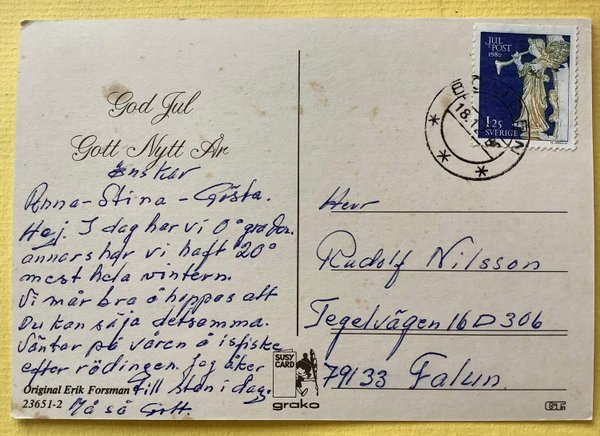 God Jul
Gott Nytt År
önskar
Anna-Stina - Gösta.
Hej. I dag har vi 0° grader.
annars har vi haft 20°
mest hela vintern.
Vi mår bra o hoppas att
Du kan säja detsamma.
Väntar på våren o isfiske
efter rödingen. Jag åker
till stan i dag.
Må så Gott.
Original Erik Forsman
23651-2
SUSY CARD
grako
JUL
POST
1980
1.25
SVERIGE
Herr
Rudolf Nilsson
Tegelvägen 16 D 306
79133 Falun.